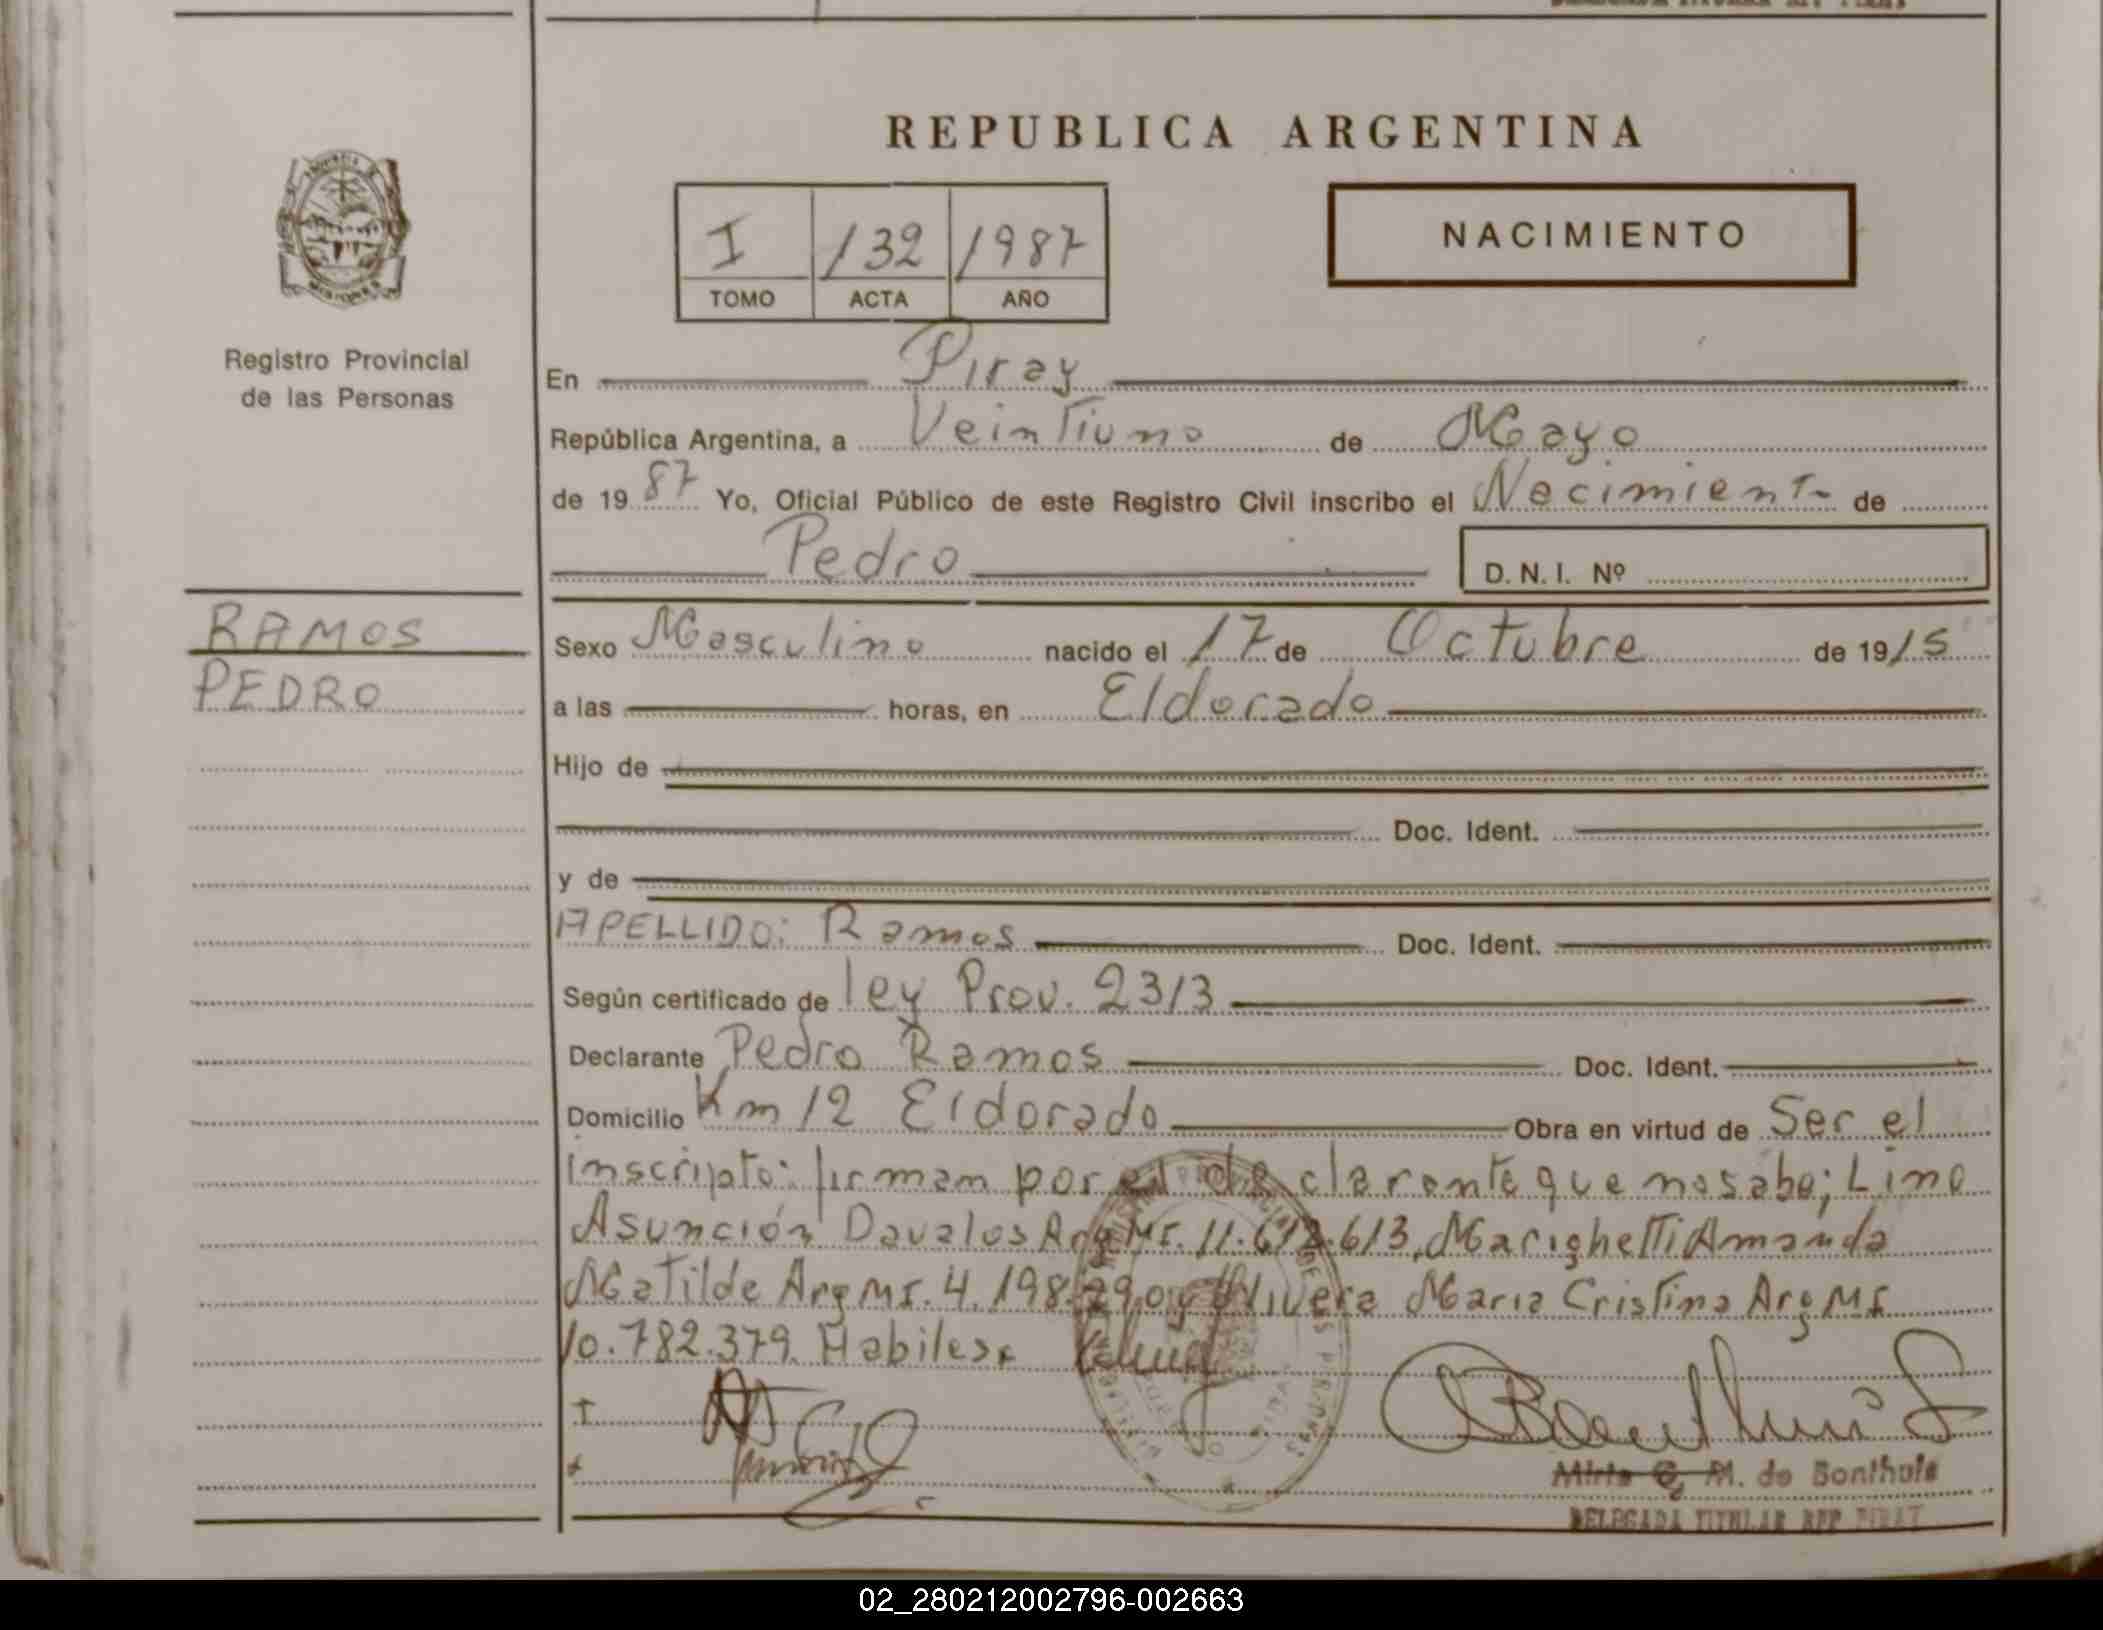 REPUBLICA ARGENTINA
I 132 1987
TOMO ACTA AÑO
NACIMIENTO
MISIONES
Registro Provincial
de las Personas
En Piray
República Argentina, a Veintiuno de Mayo
de 1987 Yo, Oficial Público de este Registro Civil inscribo el Nacimiento de
Pedro D. N. I. Nº
RAMOS
PEDRO
Sexo Masculino nacido el 17 de Octubre de 1915
a las horas, en Eldorado
Hijo de
Doc. Ident.
y de
APELLIDO: Ramos Doc. Ident.
Según certificado de ley Prov. 2313
Declarante Pedro Ramos Doc. Ident.
Domicilio Km 12 Eldorado Obra en virtud de Ser el
inscripto: firman por el declarante que no sabe; Lino
Asunción Davalos Arg MI. 11.612.613, Marighetti Amanda
Matilde Arg MI. 4.198.290 y Olivera Maria Cristina Arg MI
10.782.379. Habiles
M. de Bonthuis
DELEGADA TITULAR RPP PIRAY
02_280212002796-002663